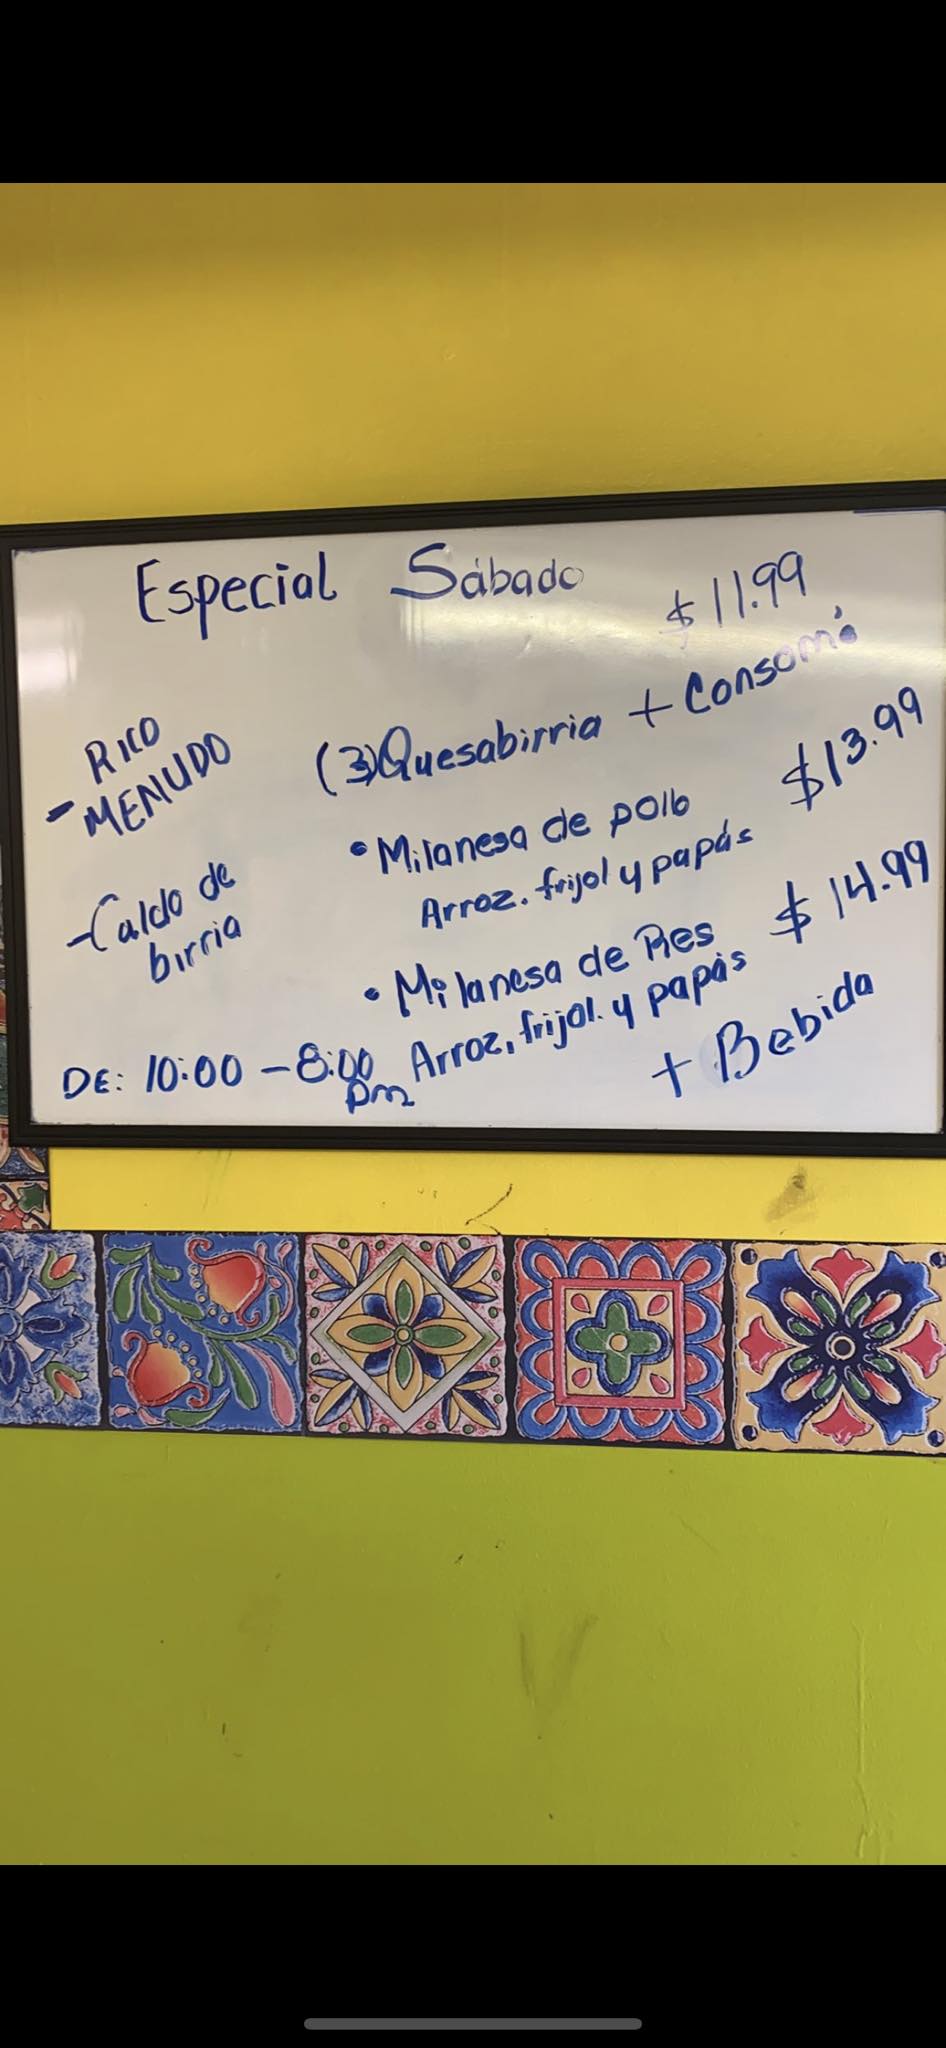 Especial Sábado
$11.99
(3)Quesabirria + Consomé
RICO
- MENUDO
• Milanesa de pollo $13.99
Arroz. frijol y papás
- Caldo de
birria
• Milanesa de Res $14.99
Arroz, frijol. y papás
+ Bebida
DE: 10:00 - 8:00
pm